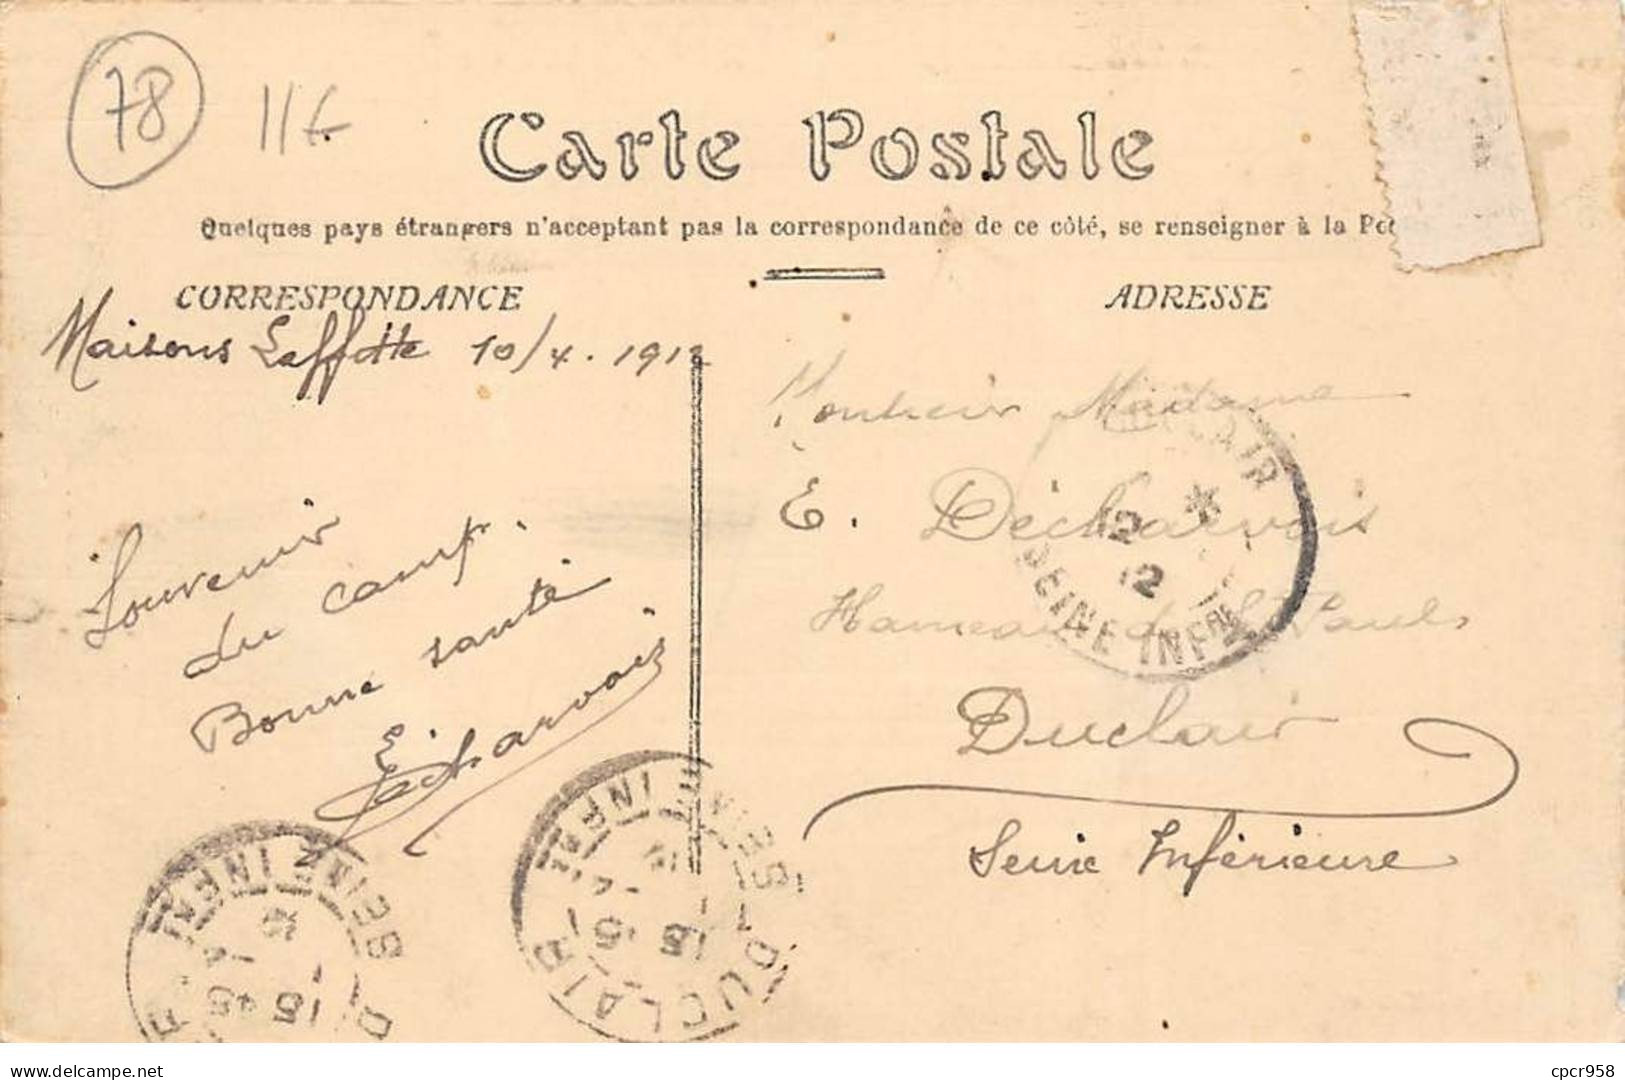 78
11€
Carte Postale
Quelques pays étrangers n'acceptant pas la correspondance de ce côté, se renseigner à la Pos
CORRESPONDANCE
Maisons Laffitte 10/4. 1912
Souvenir
du camp.
Bonne santé
E. Décharvois
ADRESSE
Monsieur Madame
E. Décharvois
Hameau de St Pauls
Duclair
Seine Inférieure
CLAIR
12
12
SEINE INFRE
DUCLAIR
SEINE INFRE
SEINE INFRE
delcampe.net
cpcr958